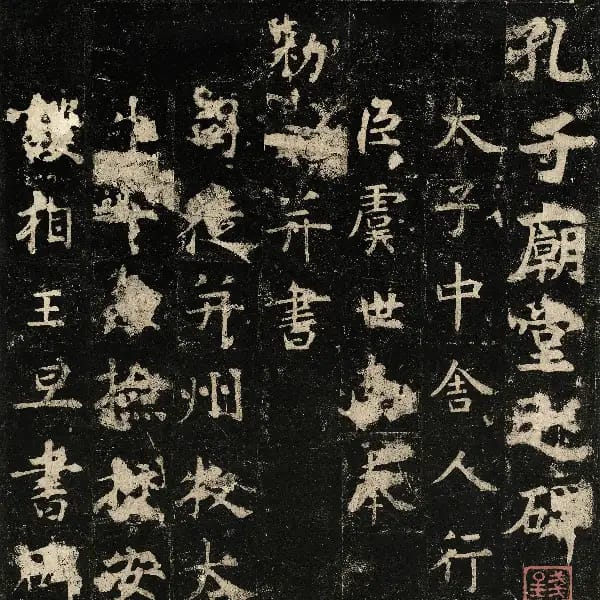 孔子廟堂之碑
太子中舍人行
臣虞世南奉
勑并書
司徒并州牧太
牛檢校安
護相王旦書碑